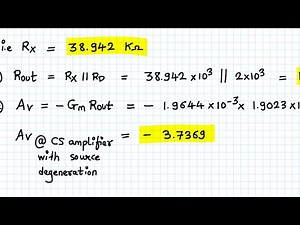 i.e Rx = 38.942 KΩ
) Rout = Rx || RD = 38.942 x10³ || 2x10³ =
) Av = - Gm Rout = - 1.9644 x10⁻³ x 1.9023 x1
Av @ CS amplifier = - 3.7369
with source
degeneration